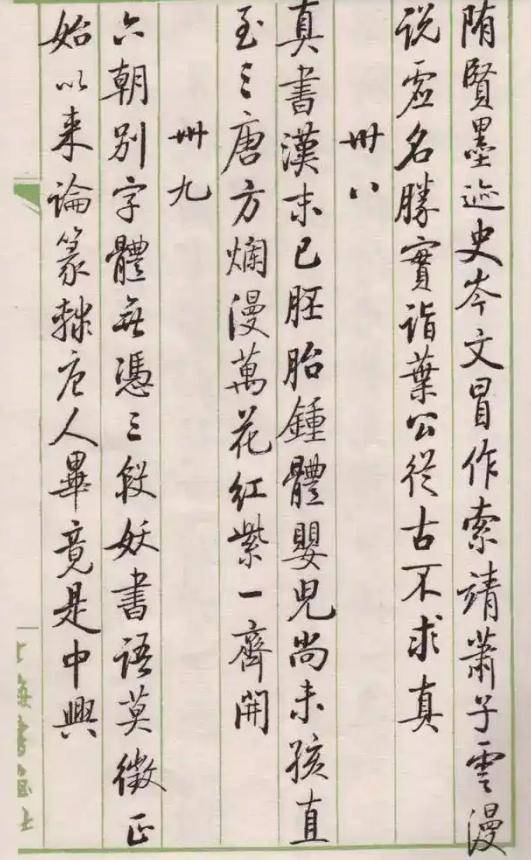 陏賢墨迹史岑文冒作索靖蕭子雲漫
说虚名勝實詣葉公從古不求真
卅八
真書漢末已胚胎鍾體嬰兒尚未孩直
至三唐方爛漫萬花红紫一齊開
卅九
六朝别字體無憑三段妖書語莫徵正
始以来論篆隸唐人畢竟是中興